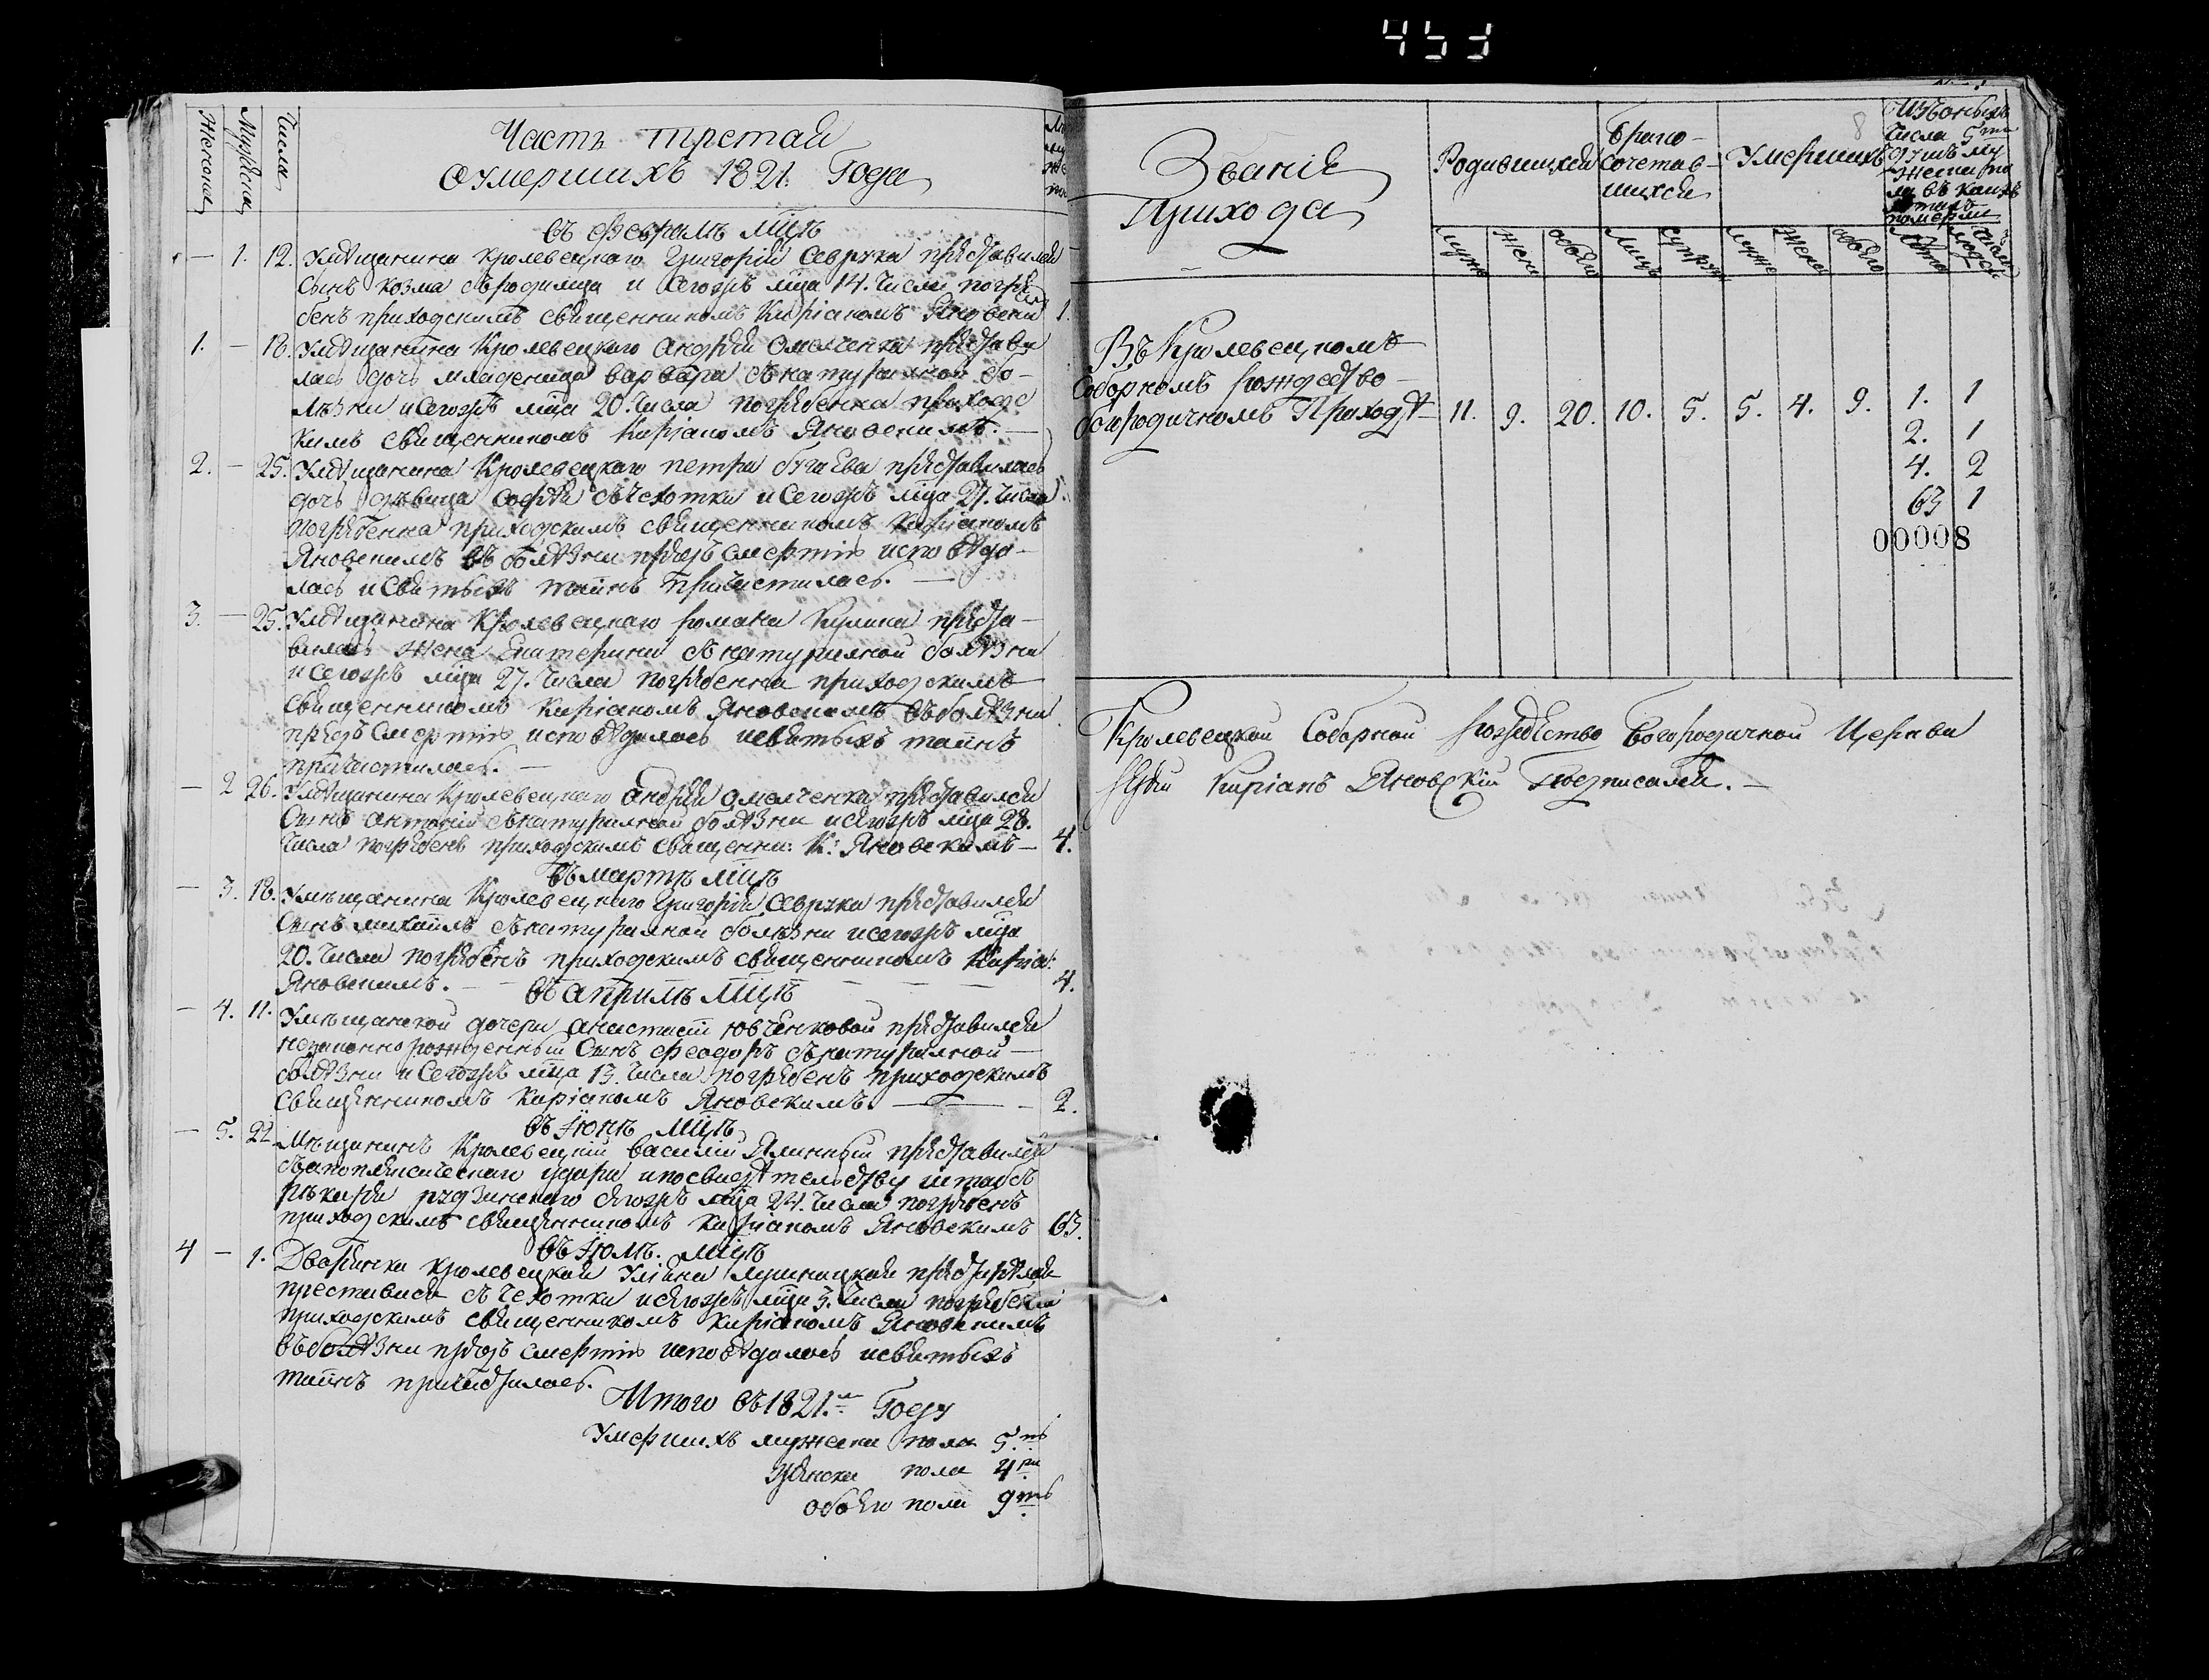 453
Женска
Мужска
Числа
Часть третая
О умершихъ 1821. Года
въ февралѣ мцѣ
— 1. 12. У мѣщанина кролевецкаго Григорія Севрука преставился
сынъ козма съ родимца и сегожъ мца 14. Числа погре
бенъ приходскимъ священникомъ Киріакомъ Яновски 1.
1. — 18. У мѣщанина Кролевецкаго Андрея Омелченка престави
лась дочь младеница варвара съ натуралной бо-
лѣзни и сегожъ мца 20. Числа погребенна приходс
кимъ священникомъ Киріакомъ Яновскимъ. —
2. — 25. У мѣщанина Кролевецкаго петра преставилась
дочь дѣвица софія съ чехотки и сегожъ мца 27. числа
погребенна приходскимъ священникомъ Киріакомъ
Яновскимъ въ болѣзни предъ смертію исповѣда-
лась и святыхъ таинъ причистилась. —
3. — 25. У мѣщанина Кролевецкаго романа Кулика преста-
вилась жена Екатерина съ натуралной болѣзни
и сегожъ мца 27. Числа погребенна приходскимъ
священникомъ Киріакомъ Яновскимъ въ болѣзни
предъ смертію исповѣдалась и святыхъ таинъ
причистилась. —
— 2 26. У мѣщанина Кролевецкаго андрея омелченка преставился
сынъ антоній съ натуралной болѣзни и сегожъ мца 28.
числа погребенъ приходскимъ священни: К: Яновскимъ — 4.
въ мартѣ мцѣ
— 3. 18. У мѣщанина Кролевецкаго Григорія Севрука преставился
сынъ михаилъ съ натуралной болѣзни и сегожъ мца
20. числа погребенъ приходскимъ священникомъ Киріа:
Яновскимъ. — 4.
въ априлѣ мцѣ
— 4. 11. У мѣщанской дочери анастасіи Ювченковой преставился
незаконно рожденный сынъ феодоръ съ натуралной —
болѣзни и сегожъ мца 13. числа погребенъ приходскимъ
священникомъ Киріакомъ Яновскимъ. — 2.
въ Іюнѣ мцѣ
— 5. 22. Мѣщанинъ Кролевецкій василій преставился
съ апоплексическаго удара и по свидѣтельству штабъ
лѣкаря сегожъ мца 24. числа погребенъ
приходскимъ священникомъ Киріакомъ Яновскимъ 63.
въ Іюлѣ. мцѣ
4 — 1. Дворянка кролевецкая Уліяна
преставися съ чехотки и сегожъ мца 3. числа погребенна
приходскимъ священникомъ Киріакомъ Яновскимъ
въ болѣзни предъ смертію исповѣдалась и святыхъ
таинъ причистилась.
Итого въ 1821.м Году
Умершихъ мужеска пола 5.ть
Женска пола 4.ри
обоего пола 9.ть
8
Званіе
Прихода
Родившихся
Брако-
сочетав-
шихся
Умершихъ
Изъ оныхъ
числа 5ти
душъ му
жеска по
ла въ каихъ
лѣтахъ
померли
мужс
женс
обоего
лицъ
супруж
мужс
женс
обоего
Лѣта
число людей
Въ Кролевецкомъ
Соборномъ рождество-
богородичномъ Приходѣ 11. 9. 20. 10. 5. 5. 4. 9. 1. 1
2. 1
4. 2
63 1
00008
Кролевецкой Соборной рождество Богородичной Церкви
Іерей Киріакъ Яновскій Подписался. —